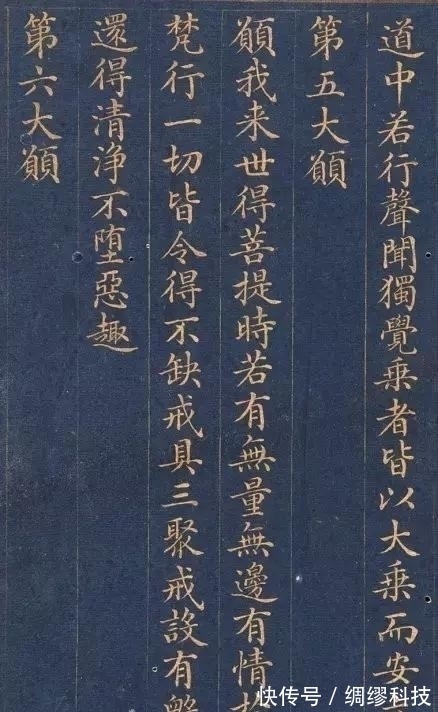 道中若行聲聞獨覺乘者皆以大乘而安
第五大願
願我来世得菩提時若有無量無邊有情
梵行一切皆令得不缺戒具三聚戒設有
還得清淨不堕惡趣
第六大願
快传号/绸缪科技